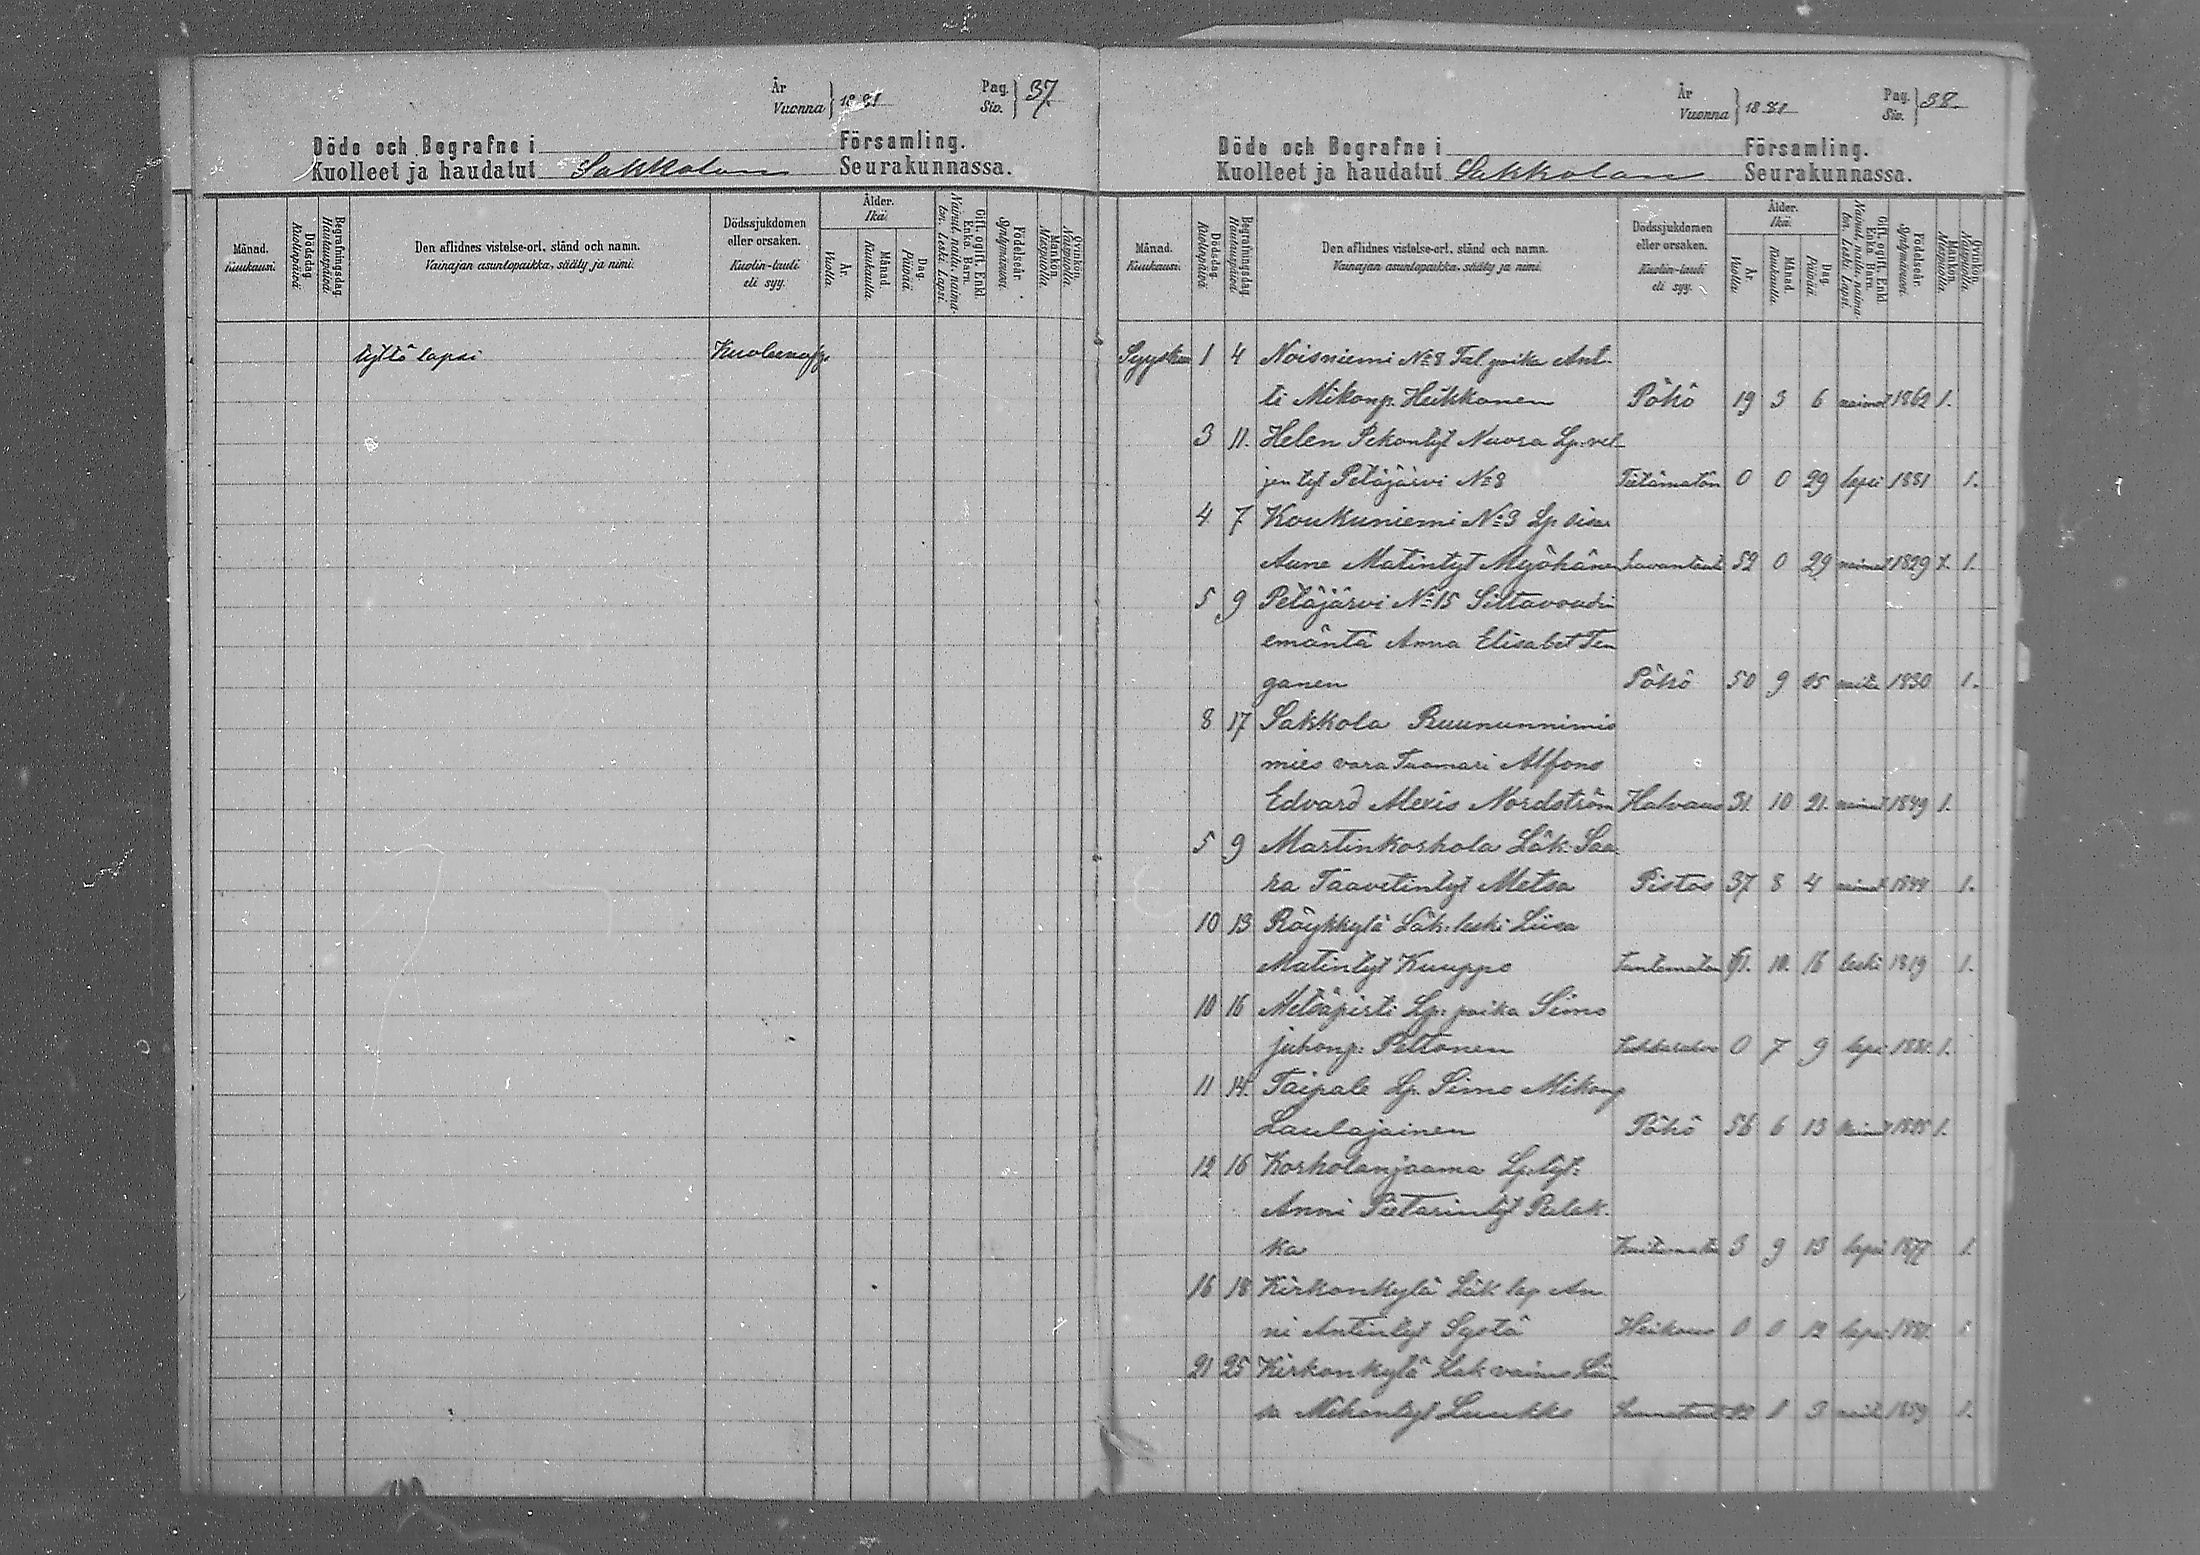 År
Vuonna } 1881
Pag. Siv. } 37.
Döde och Begrafne i Församling.
Kuolleet ja haudatut Sakkolan Seurakunnassa.
Månad. Kuukausi.
Dödsdag. Kuolinpäivä.
Begrafningsdag. Hautauspäivä.
Den aflidnes vistelse-ort, stånd och namn.
Vainajan asuntopaikka, sääty ja nimi.
Dödssjukdomen eller orsaken.
Kuolin-tauti eli syy.
Ålder. Ikä.
År. Vuotta.
Månad. Kuukautta.
Dag. Päivää.
Gift, ogift, Enkl. Enka, Barn.
Nainut, naitu, naimaton, Leski, Lapsi.
Födelseår. Syntymävuosi.
Mankön. Miespuolia.
Qvinkön. Naispuolia.
tyttö lapsi
År
Vuonna } 1881
Pag. Siv. } 38
Döde och Begrafne i Församling.
Kuolleet ja haudatut Sakkolan Seurakunnassa.
Månad. Kuukausi.
Dödsdag. Kuolinpäivä.
Begrafningsdag. Hautauspäivä.
Den aflidnes vistelse-ort, stånd och namn.
Vainajan asuntopaikka, sääty ja nimi.
Dödssjukdomen eller orsaken.
Kuolin-tauti eli syy.
Ålder. Ikä.
År. Vuotta.
Månad. Kuukautta.
Dag. Päivää.
Gift, ogift, Enkl. Enka, Barn.
Nainut, naitu, naimaton, Leski, Lapsi.
Födelseår. Syntymävuosi.
Mankön. Miespuolia.
Qvinkön. Naispuolia.
Syyskuu 1 4 Noisniemi No 8 Tal poika Ant-
ti Mikonp. Heikkonen Pöhö 19 3 6 naimat 1862 1.
3 11. Helen Pekantyt Nuora Lp. vel
jen tyt Petäjärvi No 8 Tietämatön 0 0 29 lapsi 1881 1.
4 7 Koukuniemi No 3 Lp sisar
Aune Matintyt Myöhänen Lavantauti 52 0 29 naimat 1829 1.
5 9 Petäjärvi No 15 Siltavoudin
emäntä Anna Elisabet Ten
ganen Pöhö 50 9 15 naitu 1830 1.
8 17 Sakkola Ruununnimis
mies vara Tuomari Alfons
Edvard Alexis Nordström Halvaus 31. 10 21. naimat 1849 1.
5 9 Martinkorkola Läk. Saa
ra Taavetintyt Metsa Pistos 37 8 4 naimat 1.
10 13 Röykkylä Läk. leski Liisa
Matintyt Kuuppo Tuntematon 61. 10. 16 leski 1819 1.
10 16 Metsäpirti Lp. poika Simo
Juhonp. Peltonen 0 7 9 lapsi 1881. 1.
11 14. Taipale Lp. Simo Mikonp
Laulajainen Pöhö 56 6 13 1.
12 16 Korholanjaama Lp. tyt.
Anni Pietarintyt Palak-
ka 3 9 13 lapsi 1877 1.
16 18 Kirkonkylä Läk lap An
ni Antintyt Systä Heikous 0 0 12 lapsi 1881. 1
21 25 Kirkonkylä Läk vaimo Lii
sa Mikontyt Luukko 22 1 3 naitu 1859 1.